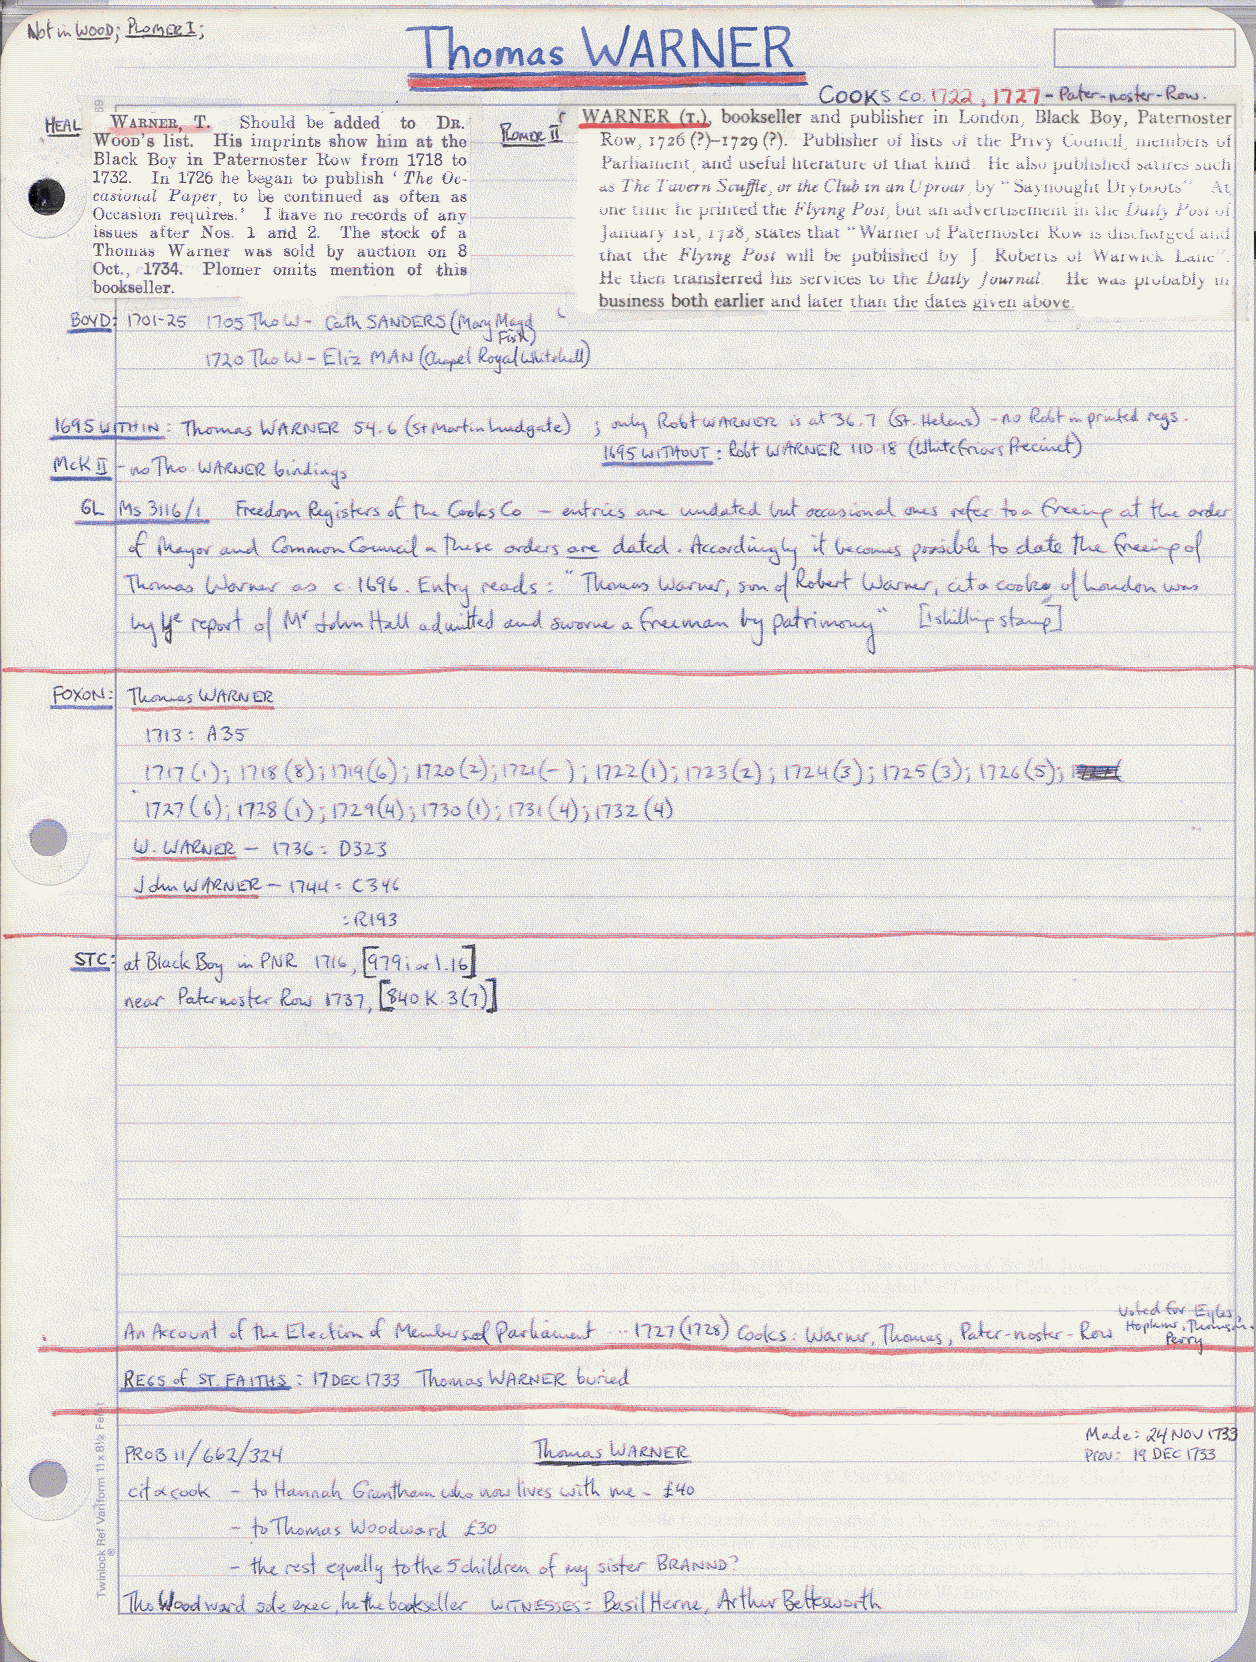 Not in WOOD; PLOMER I;
Thomas WARNER
COOKS CO. 1722, 1727 - Pater-noster-Row.
HEAL
69
WARNER, T. Should be added to DR.
WOOD'S list. His imprints show him at the
Black Boy in Paternoster Row from 1718 to
1732. In 1726 he began to publish ' The Oc-
casional Paper, to be continued as often as
Occasion requires.' I have no records of any
issues after Nos. 1 and 2. The stock of a
Thomas Warner was sold by auction on 8
Oct., 1734. Plomer omits mention of this
bookseller.
PLOMER II
WARNER (T.), bookseller and publisher in London, Black Boy, Paternoster
Row, 1726 (?)–1729 (?). Publisher of lists of the Privy Council, members of
Parliament, and useful literature of that kind. He also published satires such
as The Tavern Scuffle, or the Club in an Uproar, by "Saynought Dryboots" At
one time he printed the Flying Post, but an advertisement in the Daily Post of
January 1st, 1728, states that "Warner of Paternoster Row is discharged and
that the Flying Post will be published by J Roberts of Warwick Lane".
He then transferred his services to the Daily Journal. He was probably in
business both earlier and later than the dates given above.
BOYD: 1701-25 1705 Tho W - Cath SANDERS (Mary Magd
Fish)
1720 Tho W - Eliz MAN (Chapel Royal Whitehall)
1695 WITHIN: Thomas WARNER 54.6 (St Martin Ludgate) ; only Robt WARNER is at 36.7 (St. Helens) - no Robt in printed regs.
1695 WITHOUT: Robt WARNER 110.18 (Whitefriars Precinct)
McK II - no Tho. WARNER bindings
GL Ms 3116/1 Freedom Registers of the Cooks Co - entries are undated but occasional ones refer to a freeing at the order
of Mayor and Common Council & these orders are dated. Accordingly it becomes possible to date the freeing of
Thomas Warner as c. 1696. Entry reads: "Thomas Warner, son of Robert Warner, cit & cooke of London was
by ye report of Mr John Hall admitted and sworne a freeman by patrimony" [1 shilling stamp]
FOXON: Thomas WARNER
1713: A35
1717(1); 1718(8); 1719(6); 1720(2); 1721(-); 1722(1); 1723(2); 1724(3); 1725(3); 1726(5);
1727(6); 1728(1); 1729(4); 1730(1); 1731(4); 1732(4)
W. WARNER - 1736: D323
John WARNER - 1744: C346
: R193
STC: at Black Boy in PNR 1716, [979 i or l.16]
near Paternoster Row 1737, [840 K.3(7)]
An Account of the Election of Members of Parliament ... 1727 (1728) Cooks: Warner, Thomas, Pater-noster-Row
voted for Eyles,
Hopkins, Thomson.
Perry
REGS of ST. FAITHS: 17 DEC 1733 Thomas WARNER buried
PROB 11/662/324 Thomas WARNER
Made: 24 NOV 1733
Prov: 19 DEC 1733
cit & cook - to Hannah Grantham who now lives with me - £40
- to Thomas Woodward £30
- the rest equally to the 5 children of my sister BRANND?
Tho Woodward sole exec, he the bookseller WITNESSES: Basil Herne, Arthur Bettesworth
Twinlock Ref Variform 11 x 8½ Feint